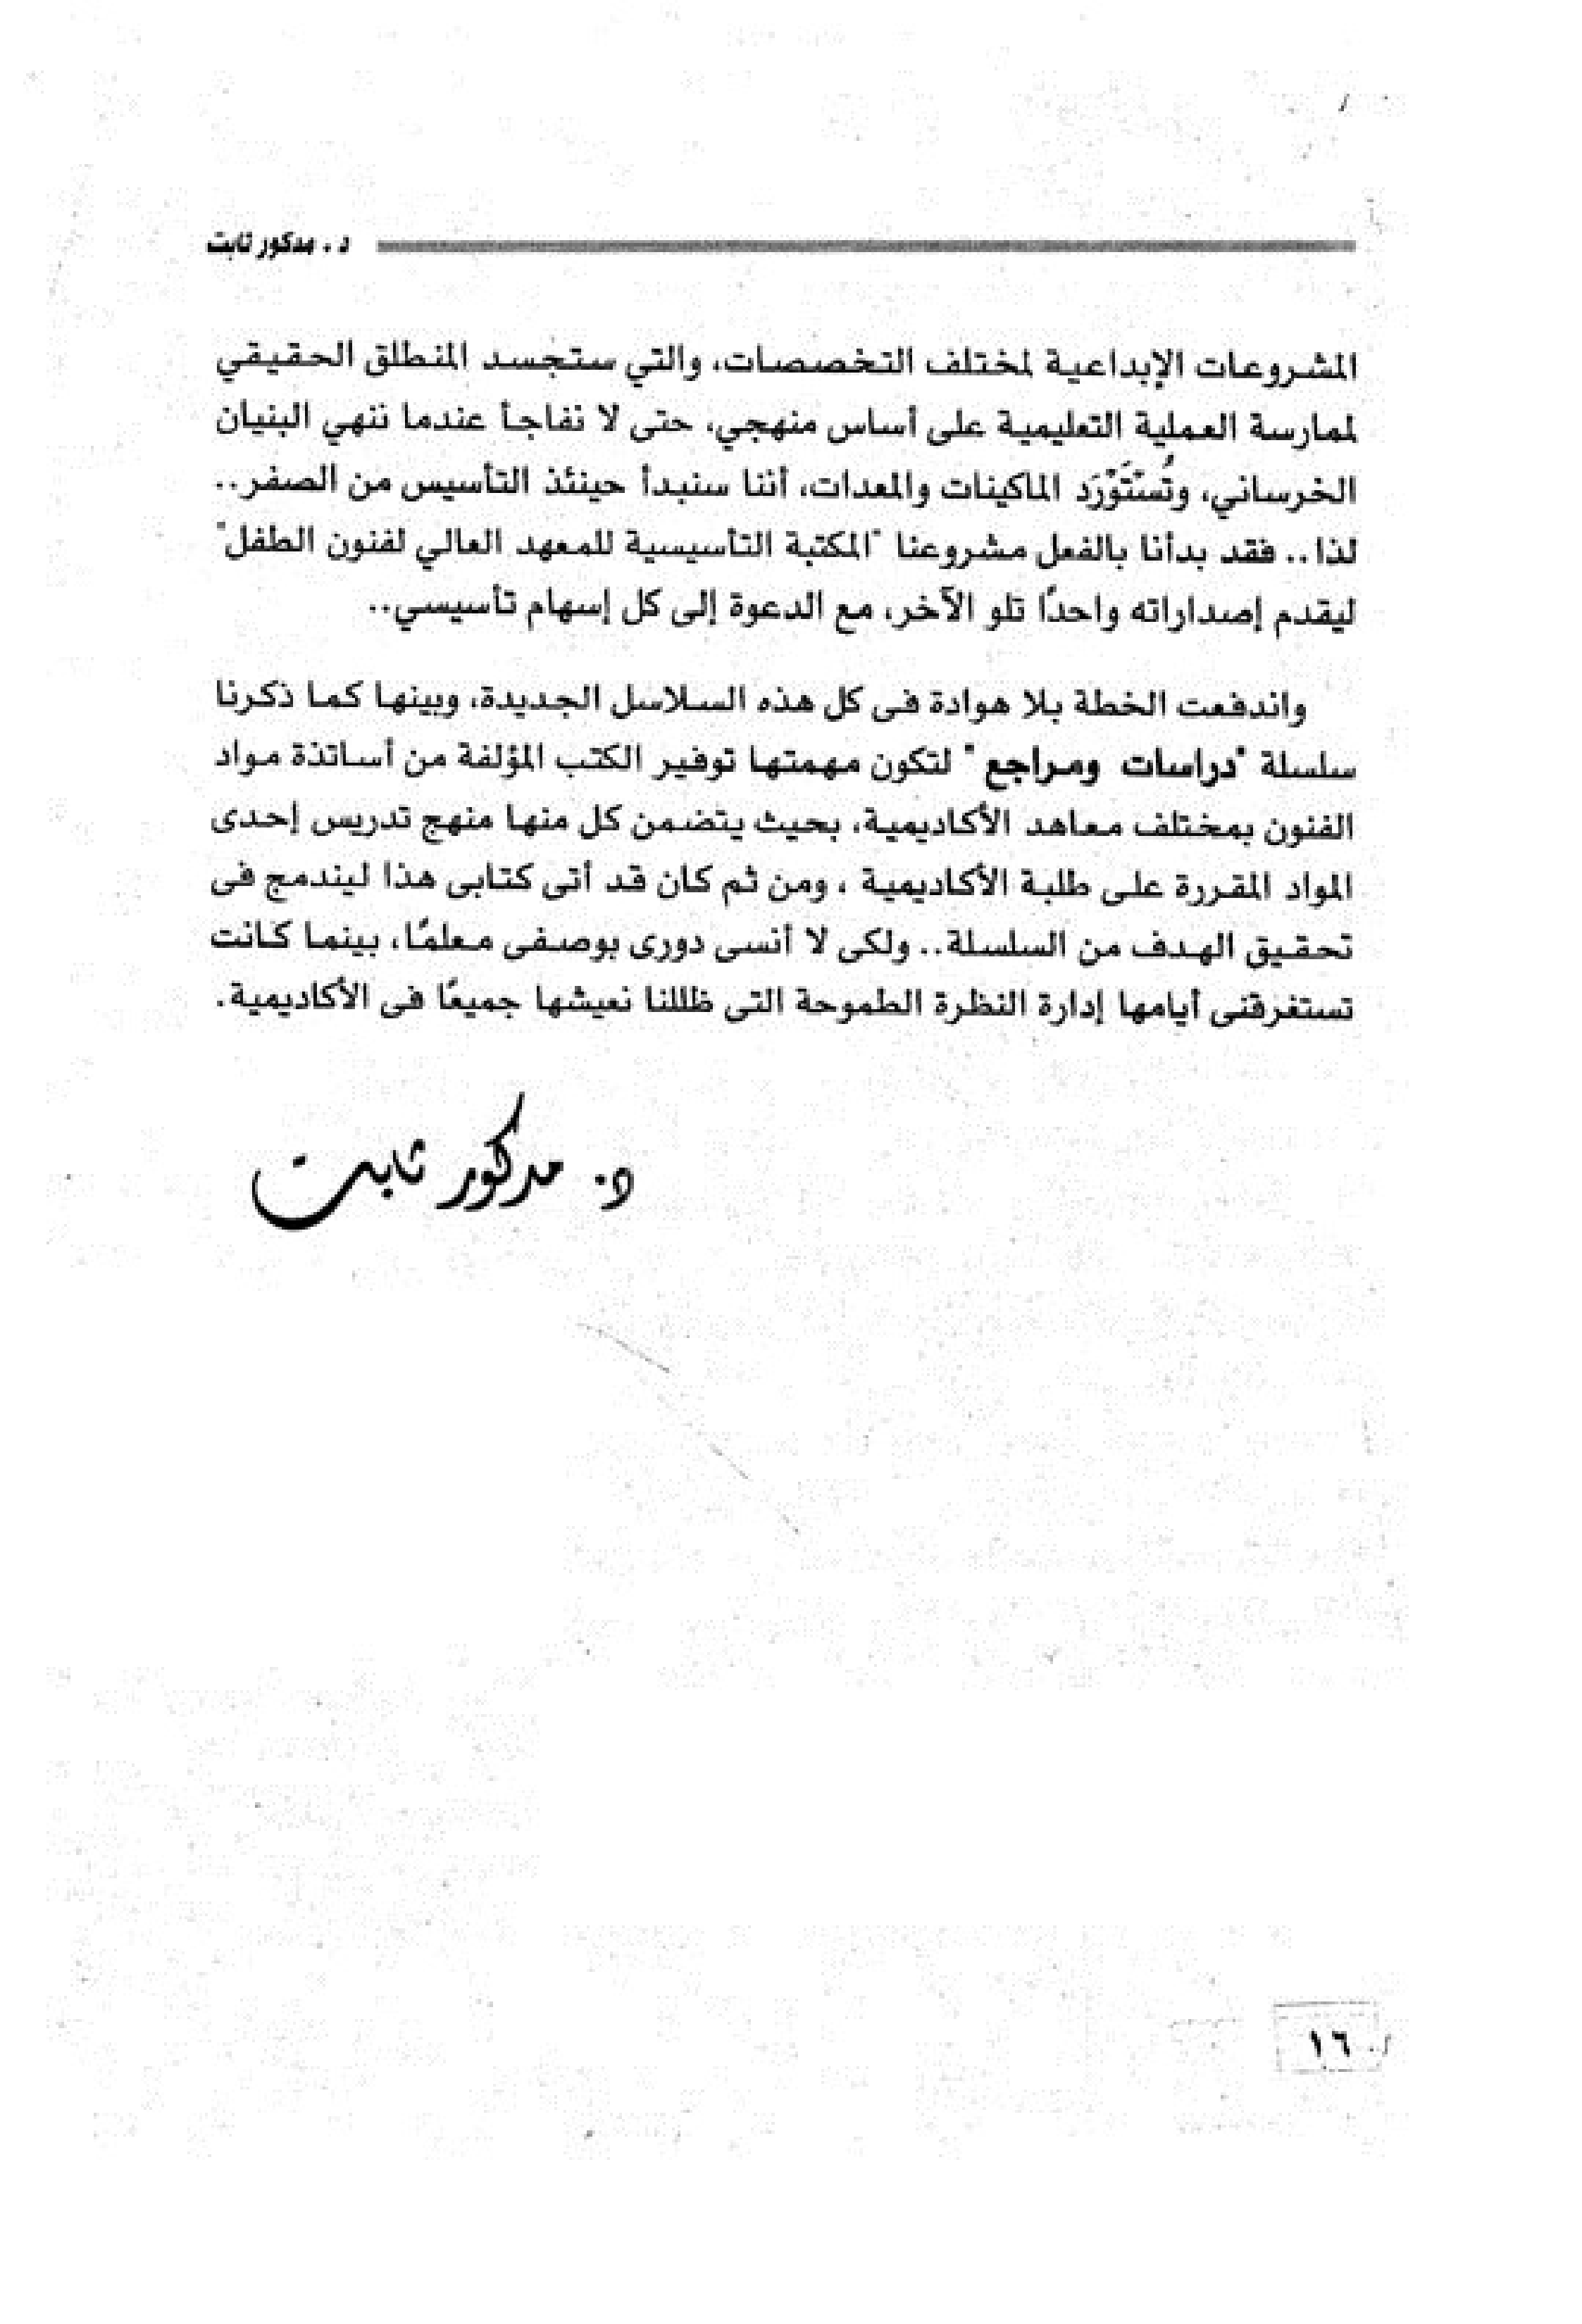 د. مدكور ثابت
المشروعات الإبداعية لمختلف التخصصات، والتي ستجسد المنطلق الحقيقي
لممارسة العملية التعليمية على أساس منهجي، حتى لا نفاجأ عندما ننهي البنيان
الخرساني، وتُسْتَوْرَد الماكينات والمعدات، أننا سنبدأ حينئذ التأسيس من الصفر..
لذا.. فقد بدأنا بالفعل مشروعنا "المكتبة التأسيسية للمعهد العالي لفنون الطفل"
ليقدم إصداراته واحدًا تلو الآخر، مع الدعوة إلى كل إسهام تأسيسي..
واندفعت الخطة بلا هوادة فى كل هذه السلاسل الجديدة، وبينها كما ذكرنا
سلسلة "دراسات ومراجع" لتكون مهمتها توفير الكتب المؤلفة من أساتذة مواد
الفنون بمختلف معاهد الأكاديمية، بحيث يتضمن كل منها منهج تدريس إحدى
المواد المقررة على طلبة الأكاديمية ، ومن ثم كان قد أتى كتابى هذا ليندمج فى
تحقيق الهدف من السلسلة.. ولكى لا أنسى دورى بوصفى معلمًا، بينما كانت
تستغرقنى أيامها إدارة النظرة الطموحة التى ظللنا نعيشها جميعًا فى الأكاديمية.
د. مدكور ثابت
١٦